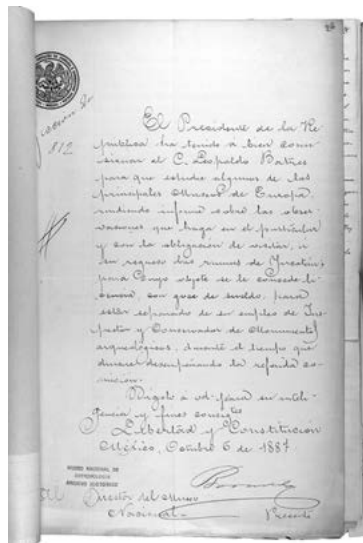 26
Sección 2a
812
El Presidente de la Re-
pública ha tenido á bien comi-
sionar al C. Leopoldo Batres
para que estudie algunos de los
principales Museos de Europa,
rindiendo informe sobre las obser-
vaciones que haga en el particular
y con la obligación de visitar, á
su regreso las ruinas de Yucatán,
para cuyo objeto se le concede li-
cencia, con goce de sueldo, para
estar separado de su empleo de Ins-
pector y Conservador de Monumentos
arqueológicos, durante el tiempo que
dure desempeñando la referida co-
misión.
Dígolo á vd. para su inteli-
gencia y fines consigtes
Libertad y Constitución
México, Octubre 6 de 1887.
MUSEO NACIONAL DE
ANTROPOLOGIA
ARCHIVO HISTORICO
Al Director del Museo
Nacional.
Presente